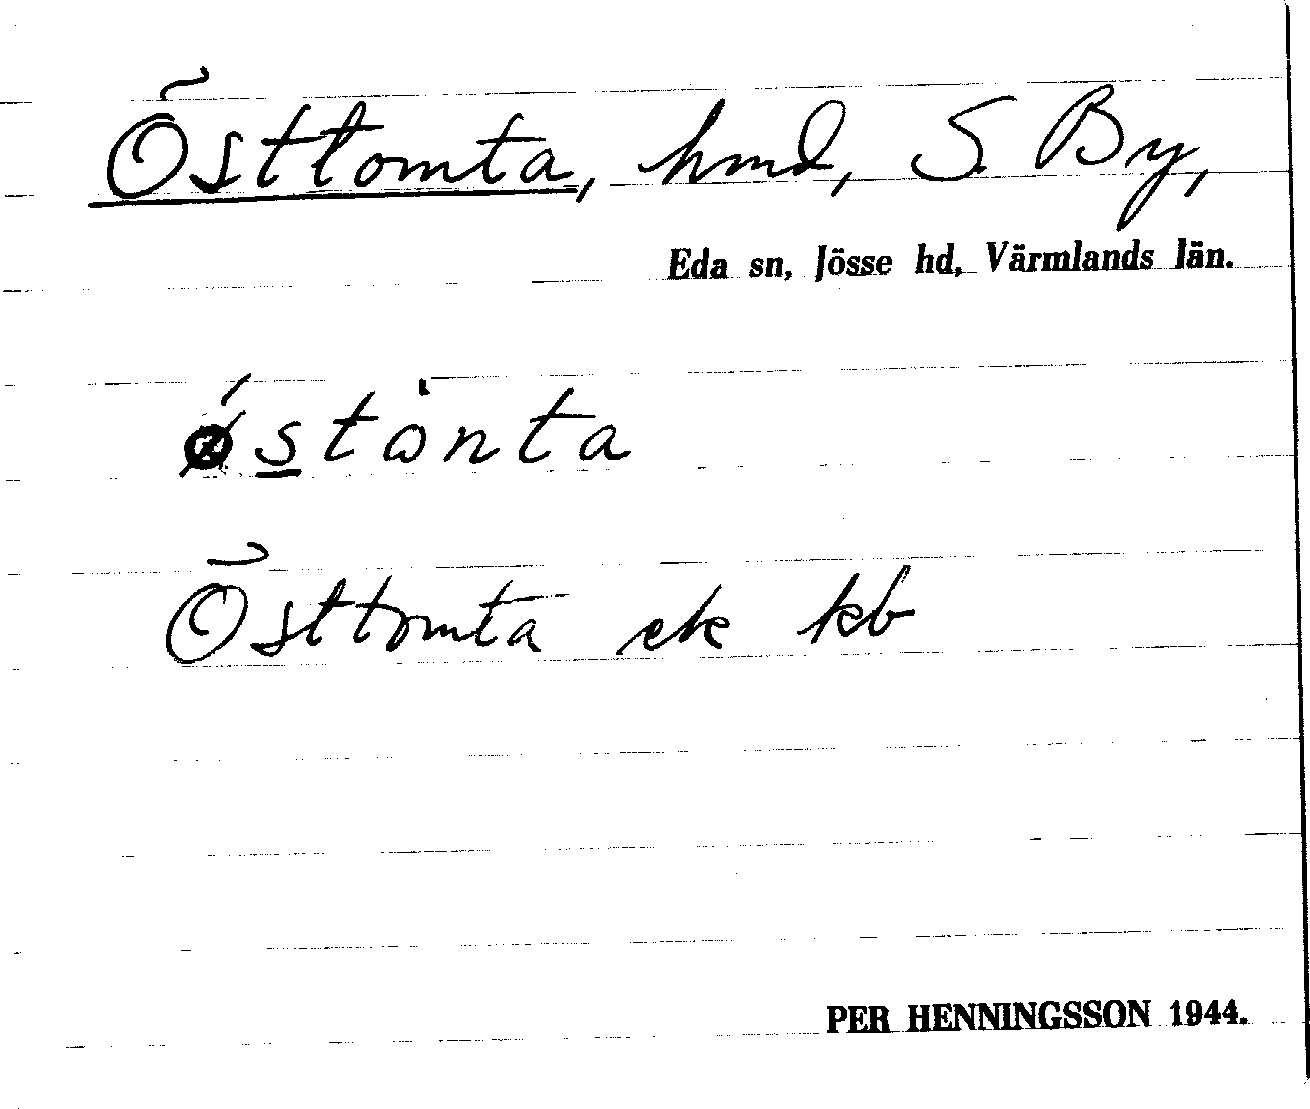 Östtomta, hmd, S. By,
Eda sn, Jösse hd, Värmlands län.
ǿstὼnta
Östtomta ek kb
PER HENNINGSSON 1944.